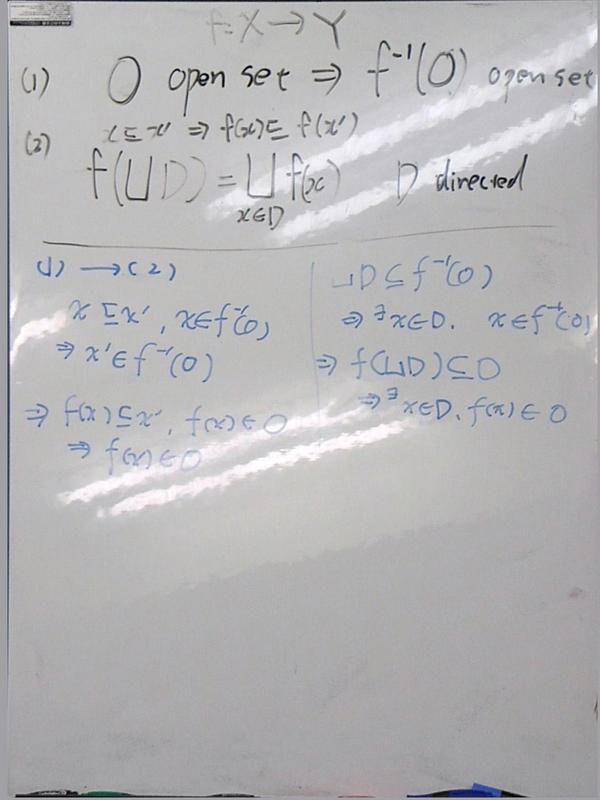 f: X → Y
(1) O open set ⇒ f⁻¹(O) open set
(2) x ⊑ x' ⇒ f(x) ⊑ f(x')
f(⊔D) = ⊔ f(x) D directed
x∈D
(1) → (2)
x ⊑ x', x∈f⁻¹(O)
⇒ x'∈f⁻¹(O)
⇒ f(x)⊑x', f(x)∈O
⇒ f(x)∈O
⊔D ⊆ f⁻¹(O)
⇒ ∃x∈D. x∈f⁻¹(O)
⇒ f(⊔D)⊆O
⇒ ∃x∈D. f(x)∈O